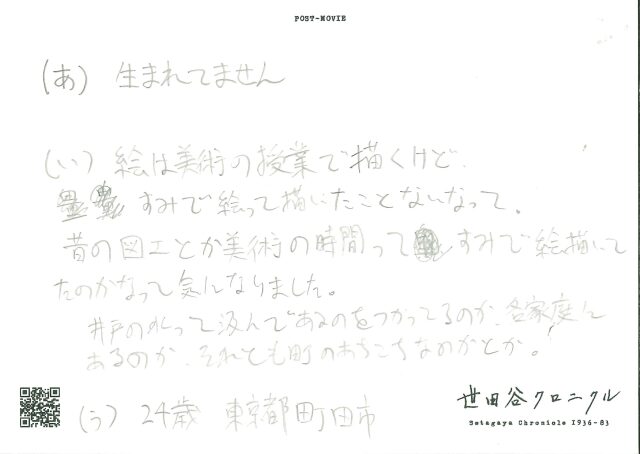 POST-MOVIE
(あ) 生まれてません
(い) 絵は美術の授業で描くけど、
すみで絵って描いたことないなって。
昔の図工とか美術の時間ってすみで絵描いて
たのかなって気になりました。
井戸の水って汲んであるのをつかってるのか、各家庭に
あるのか、それとも町のあちこちなのかとか。
(う) 24歳 東京都町田市
世田谷クロニクル
Setagaya Chronicle 1936-83